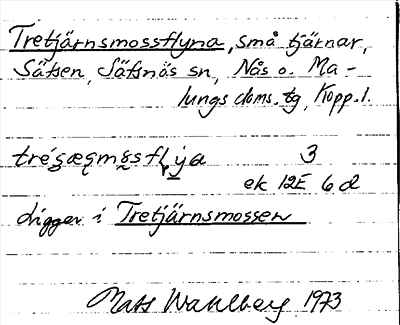 Tretjärnsmossflyna, små tjärnar,
Säfsen, Säfsnäs sn, Nås o. Ma-
lungs doms. tg, Kopp. l.
3
ek 12E 6d
Ligger i Tretjärnsmossen
Mats Wahlberg 1973